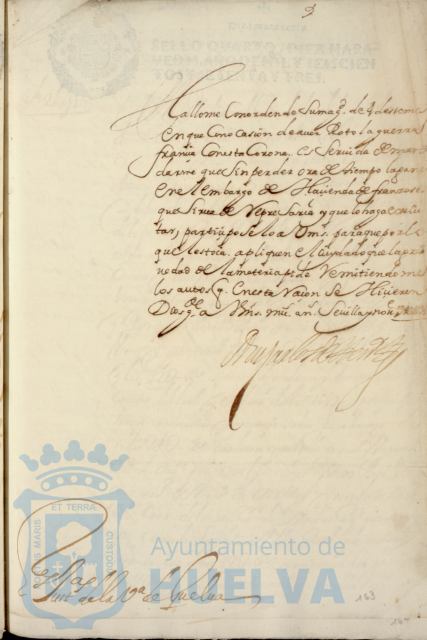 SELLO QUARTO, DIEZ MARA-
VEDIS, AÑO DE MIL Y SEISCIEN-
TOS Y SETENTA Y TRES.
Hallome Con orden de Su mag.d de
En que Con ocasion de aver Roto la guerra
françia Con esta Corona, Es Servida de man
darme que Sin perder ora de tiempo
En el Embargo de Haçienda de françeses
que Sirva de Represaria y que lo haga execu
tar, partiçipoSelo a Vms. para que por lo
que les toca apliquen el Cuydado que la
de la materia, Remitiendome
los autos q. En esta Raçon Se Hiçieren
Dios g.e a Vms. mu.s an.s Sevilla y nov.
de la V.a de Huelva
PORTUS MARIS ET TERRÆ CUSTODIA
Ayuntamiento de
HUELVA
163
164